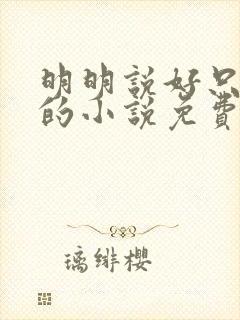 明明說好只
的小說免費
璃緋櫻